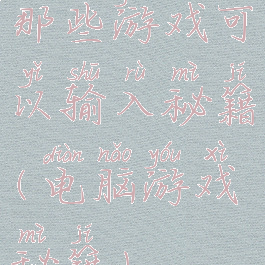 那些游戏可
yǐ shū rù mì jí
以输入秘籍
diàn nǎo yóu xì
(电脑游戏
mì jí
秘籍)